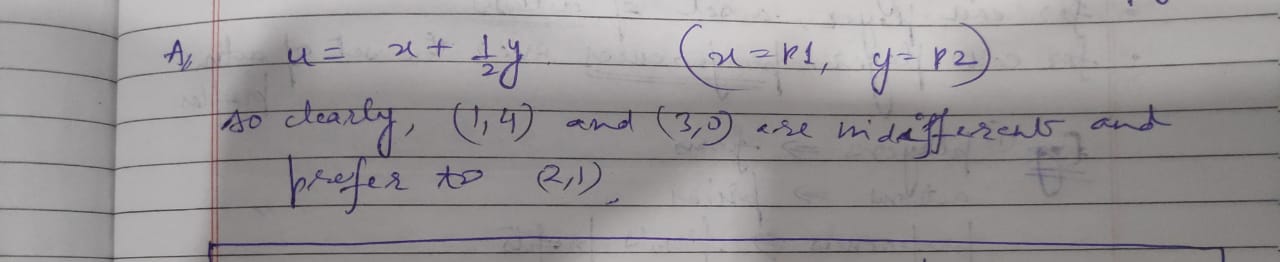 A, u = x + 1/2 y (x = P1, y = P2)
so clearly, (1,4) and (3,0) are indifferent and
prefer to (2,1).